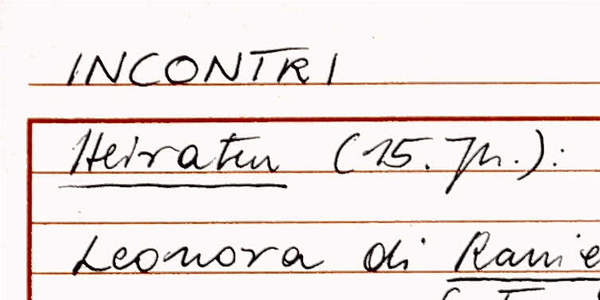 INCONTRI
Heiraten (15. Jh.):
Leonora di Ranie